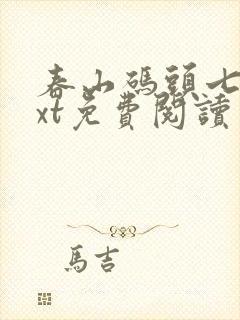 春山碼頭七
xt免費閱讀
馬吉